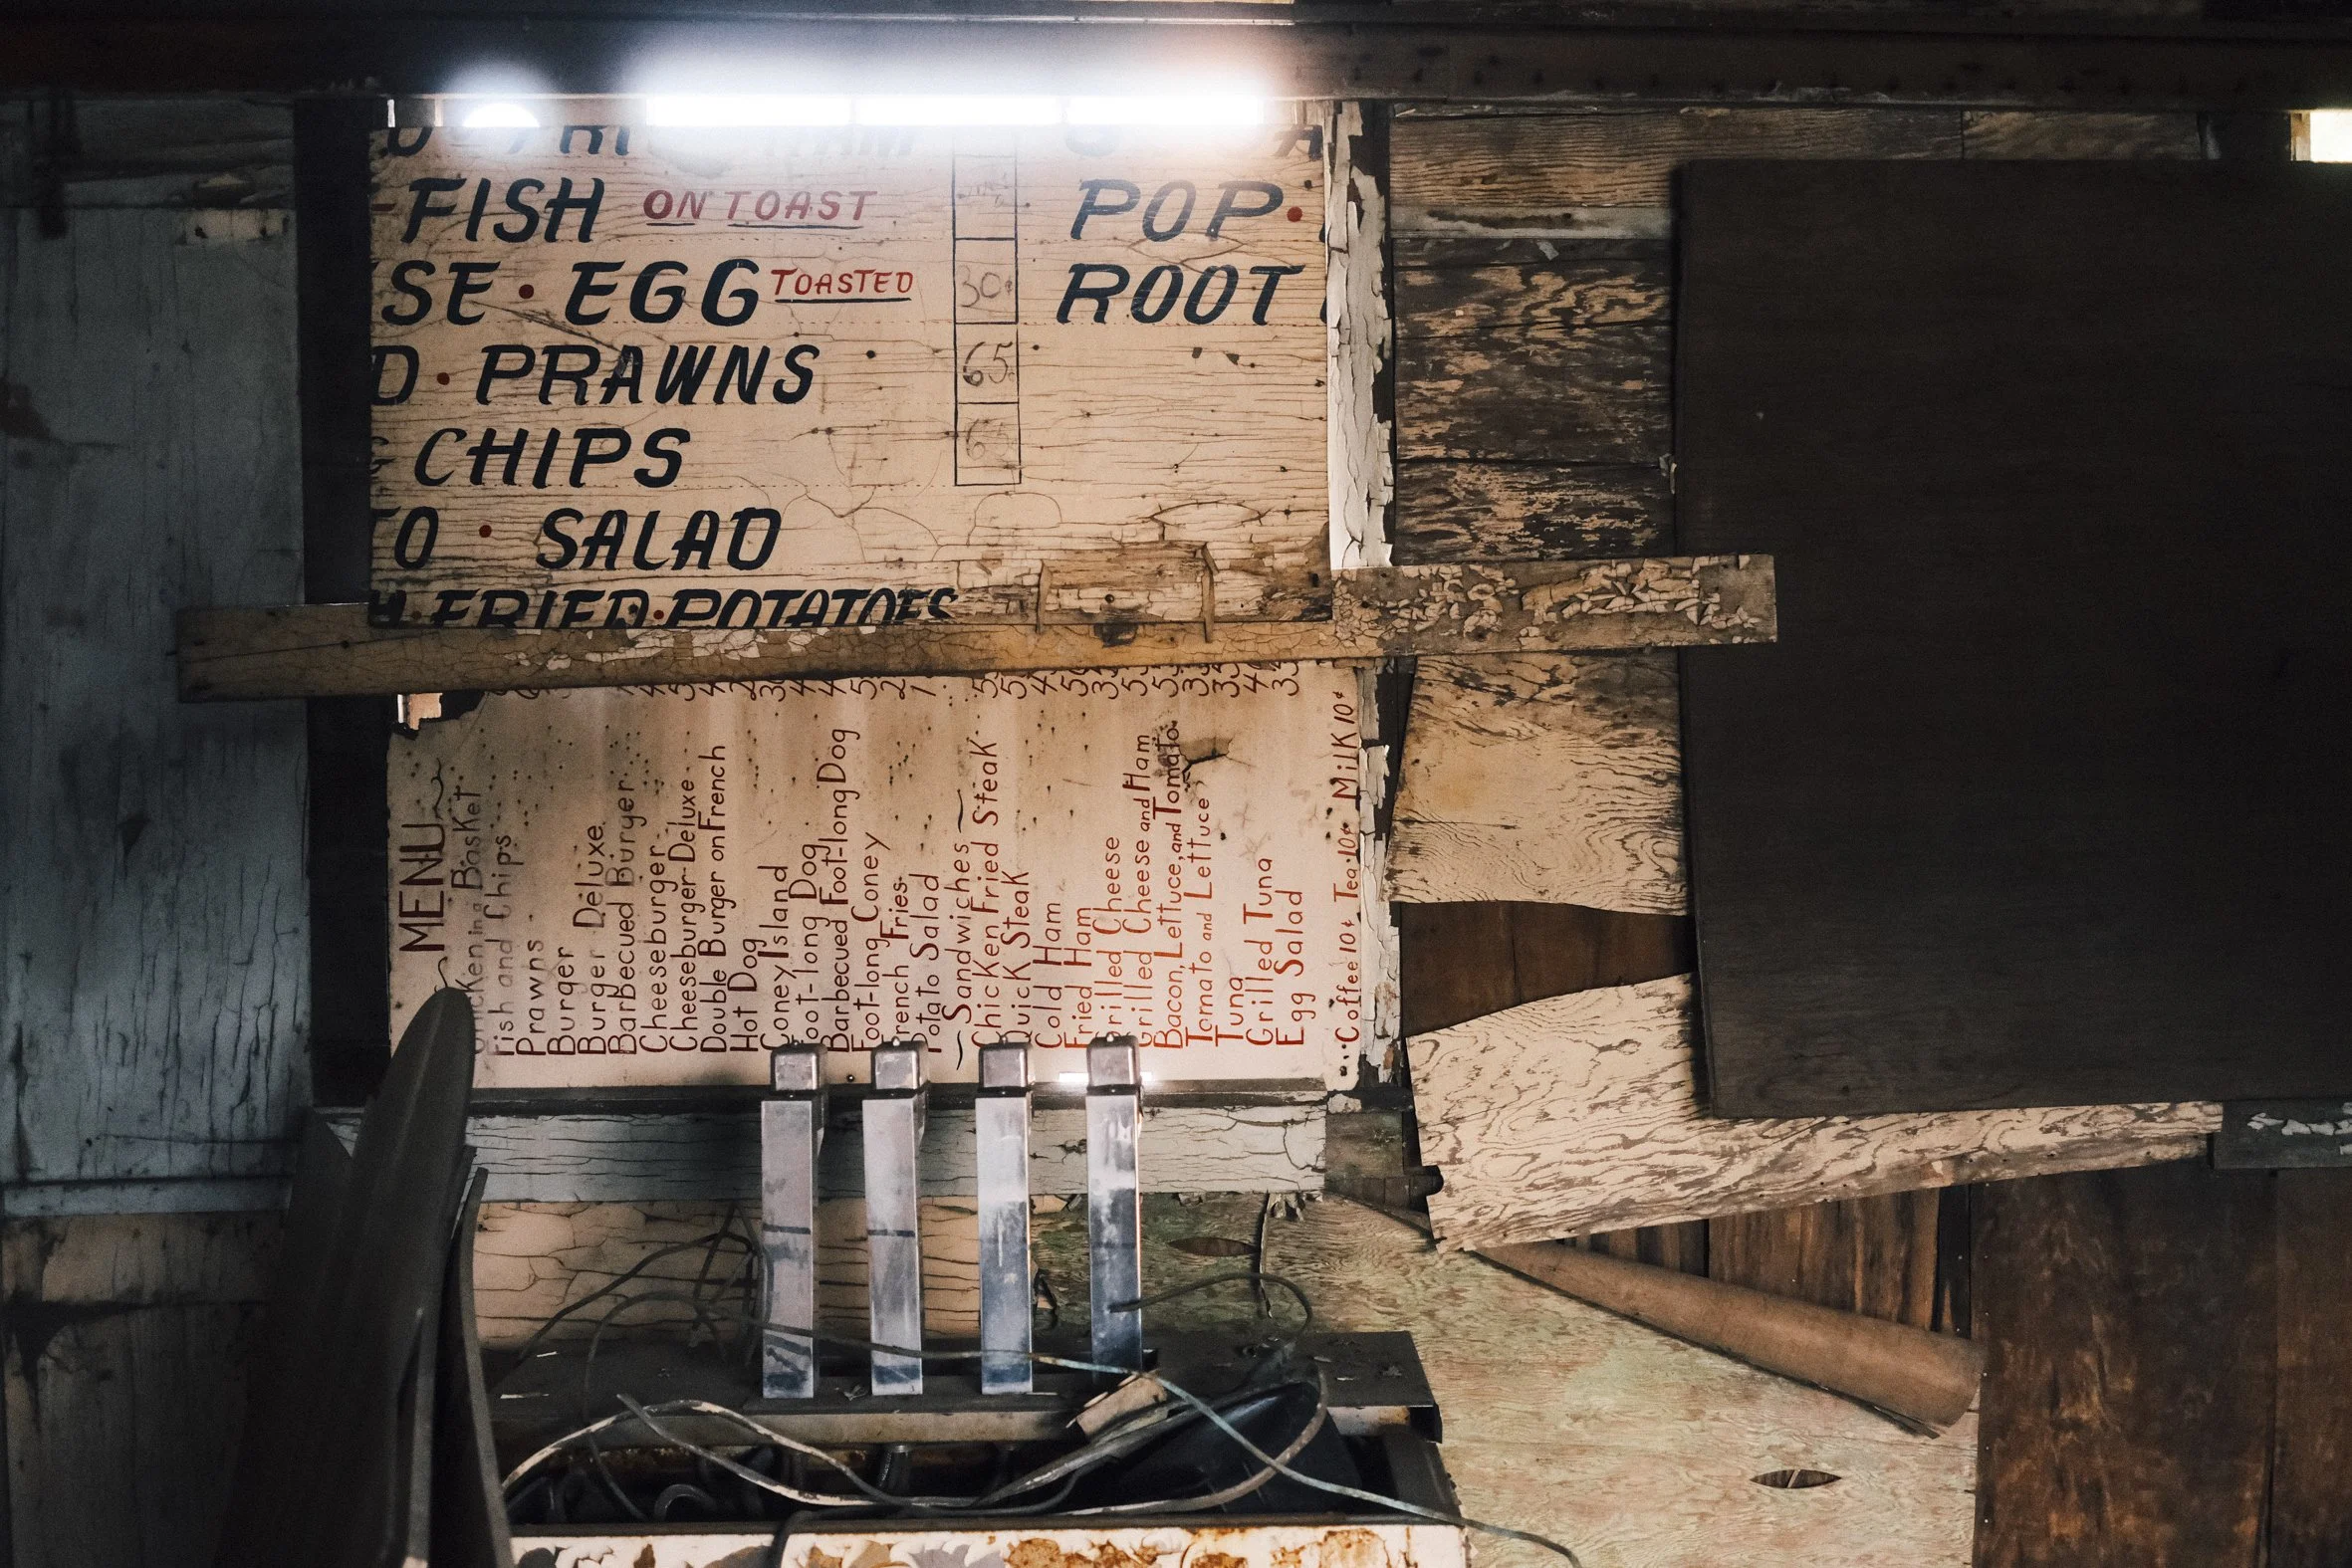 FISH ON TOAST
SE • EGG TOASTED 30¢
D • PRAWNS 65
CHIPS
TO • SALAD
FRIED • POTATOES
POP •
ROOT
MENU
in a Basket
Fish and Chips
Prawns
Burger
Burger Deluxe
Barbecued Burger
Cheeseburger
Cheeseburger Deluxe
Double Burger on French
Hot Dog
Coney Island
Foot-long Dog
Barbecued Foot-long Dog
Foot-long Coney
French Fries
Potato Salad
Sandwiches
Chicken Fried Steak
Quick Steak
Cold Ham
Fried Ham
Grilled Cheese
Grilled Cheese and Ham
Bacon, Lettuce, and Tomato
Tomato and Lettuce
Tuna
Grilled Tuna
Egg Salad
Coffee 10¢ Tea 10¢ Milk 10¢